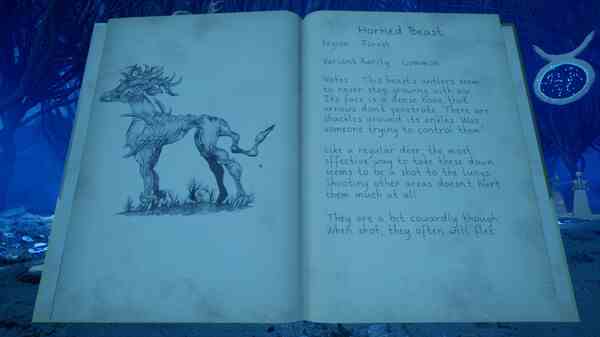 Horned Beast
Region Forest
Variant Rarity Common
Notes This beast's antlers seem
to never stop growing with age
Its face is a dense bone that
arrows don't penetrate. There are
shackles around its ankles. Was
someone trying to control them
Like a regular deer, the most
effective way to take these down
seems to be a shot to the lungs
Shooting other areas doesn't hurt
them much at all
They are a bit cowardly though
When shot, they often will flee